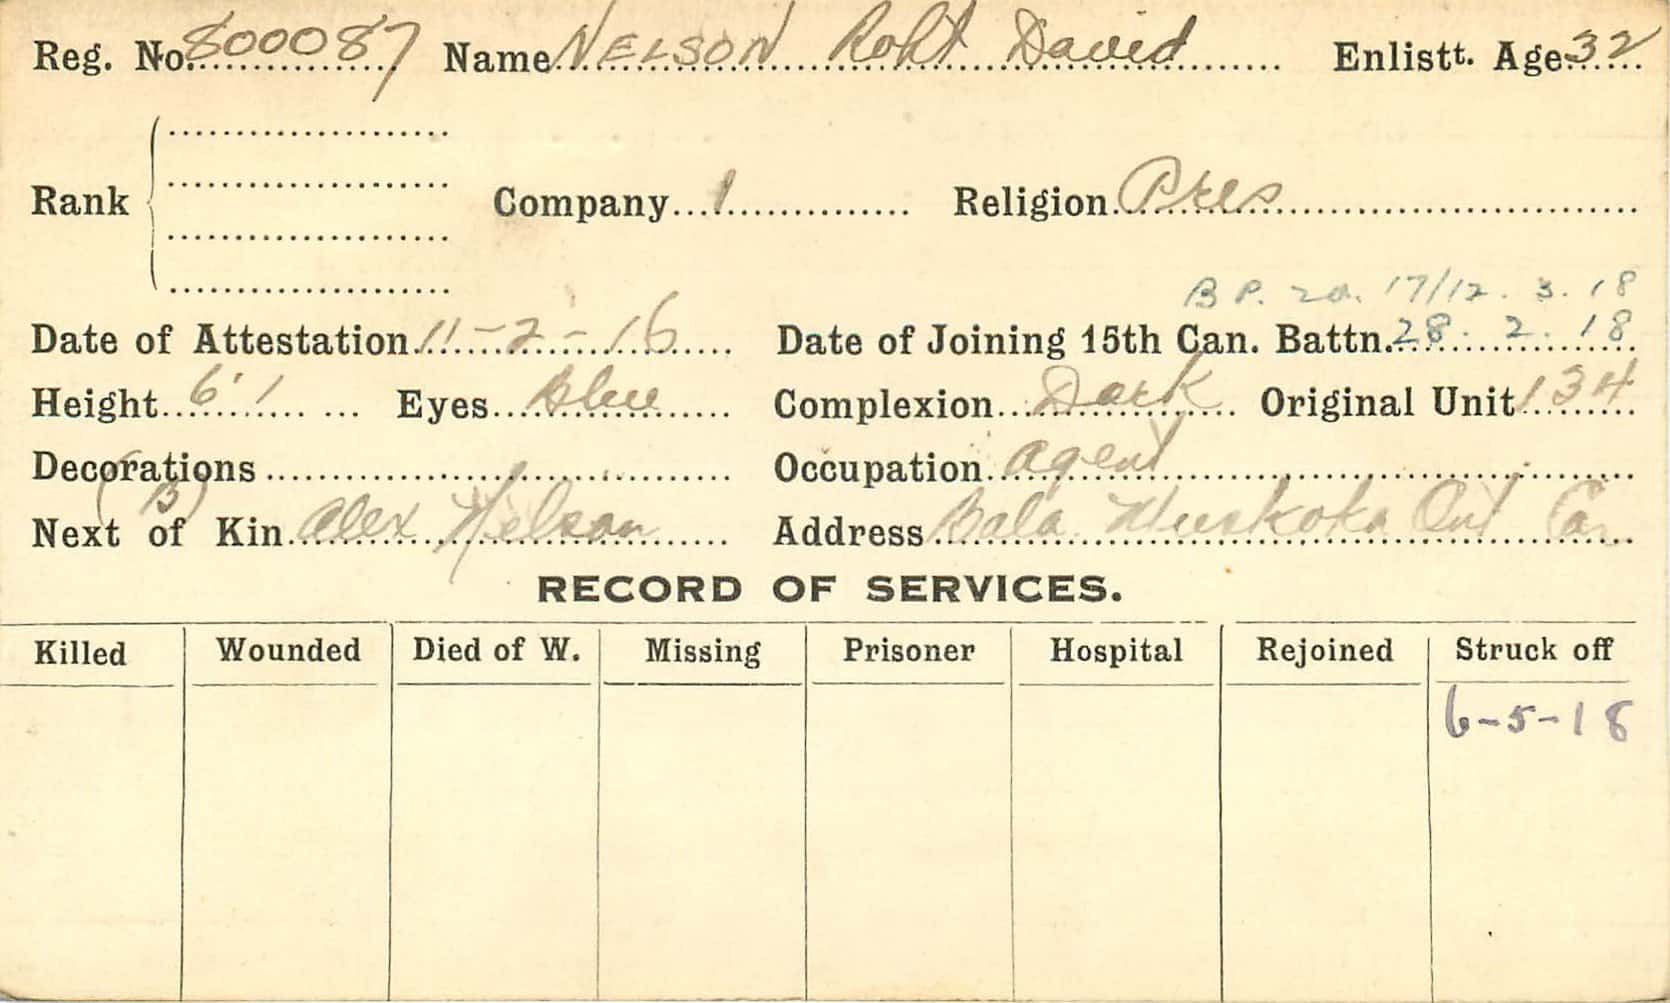 Reg. No. 800087 Name NELSON Robt David Enlistt. Age 32
Rank Company 1 Religion Pres
B P. 20. 17/12. 3. 18
Date of Attestation 11-2-16 Date of Joining 15th Can. Battn. 28. 2. 18
Height 6' 1 Eyes Blue Complexion Dark Original Unit 134
Decorations Occupation agent
(B)
Next of Kin Alex Nelson Address Bala Muskoka Ont Can
RECORD OF SERVICES.
Killed Wounded Died of W. Missing Prisoner Hospital Rejoined Struck off
6-5-18